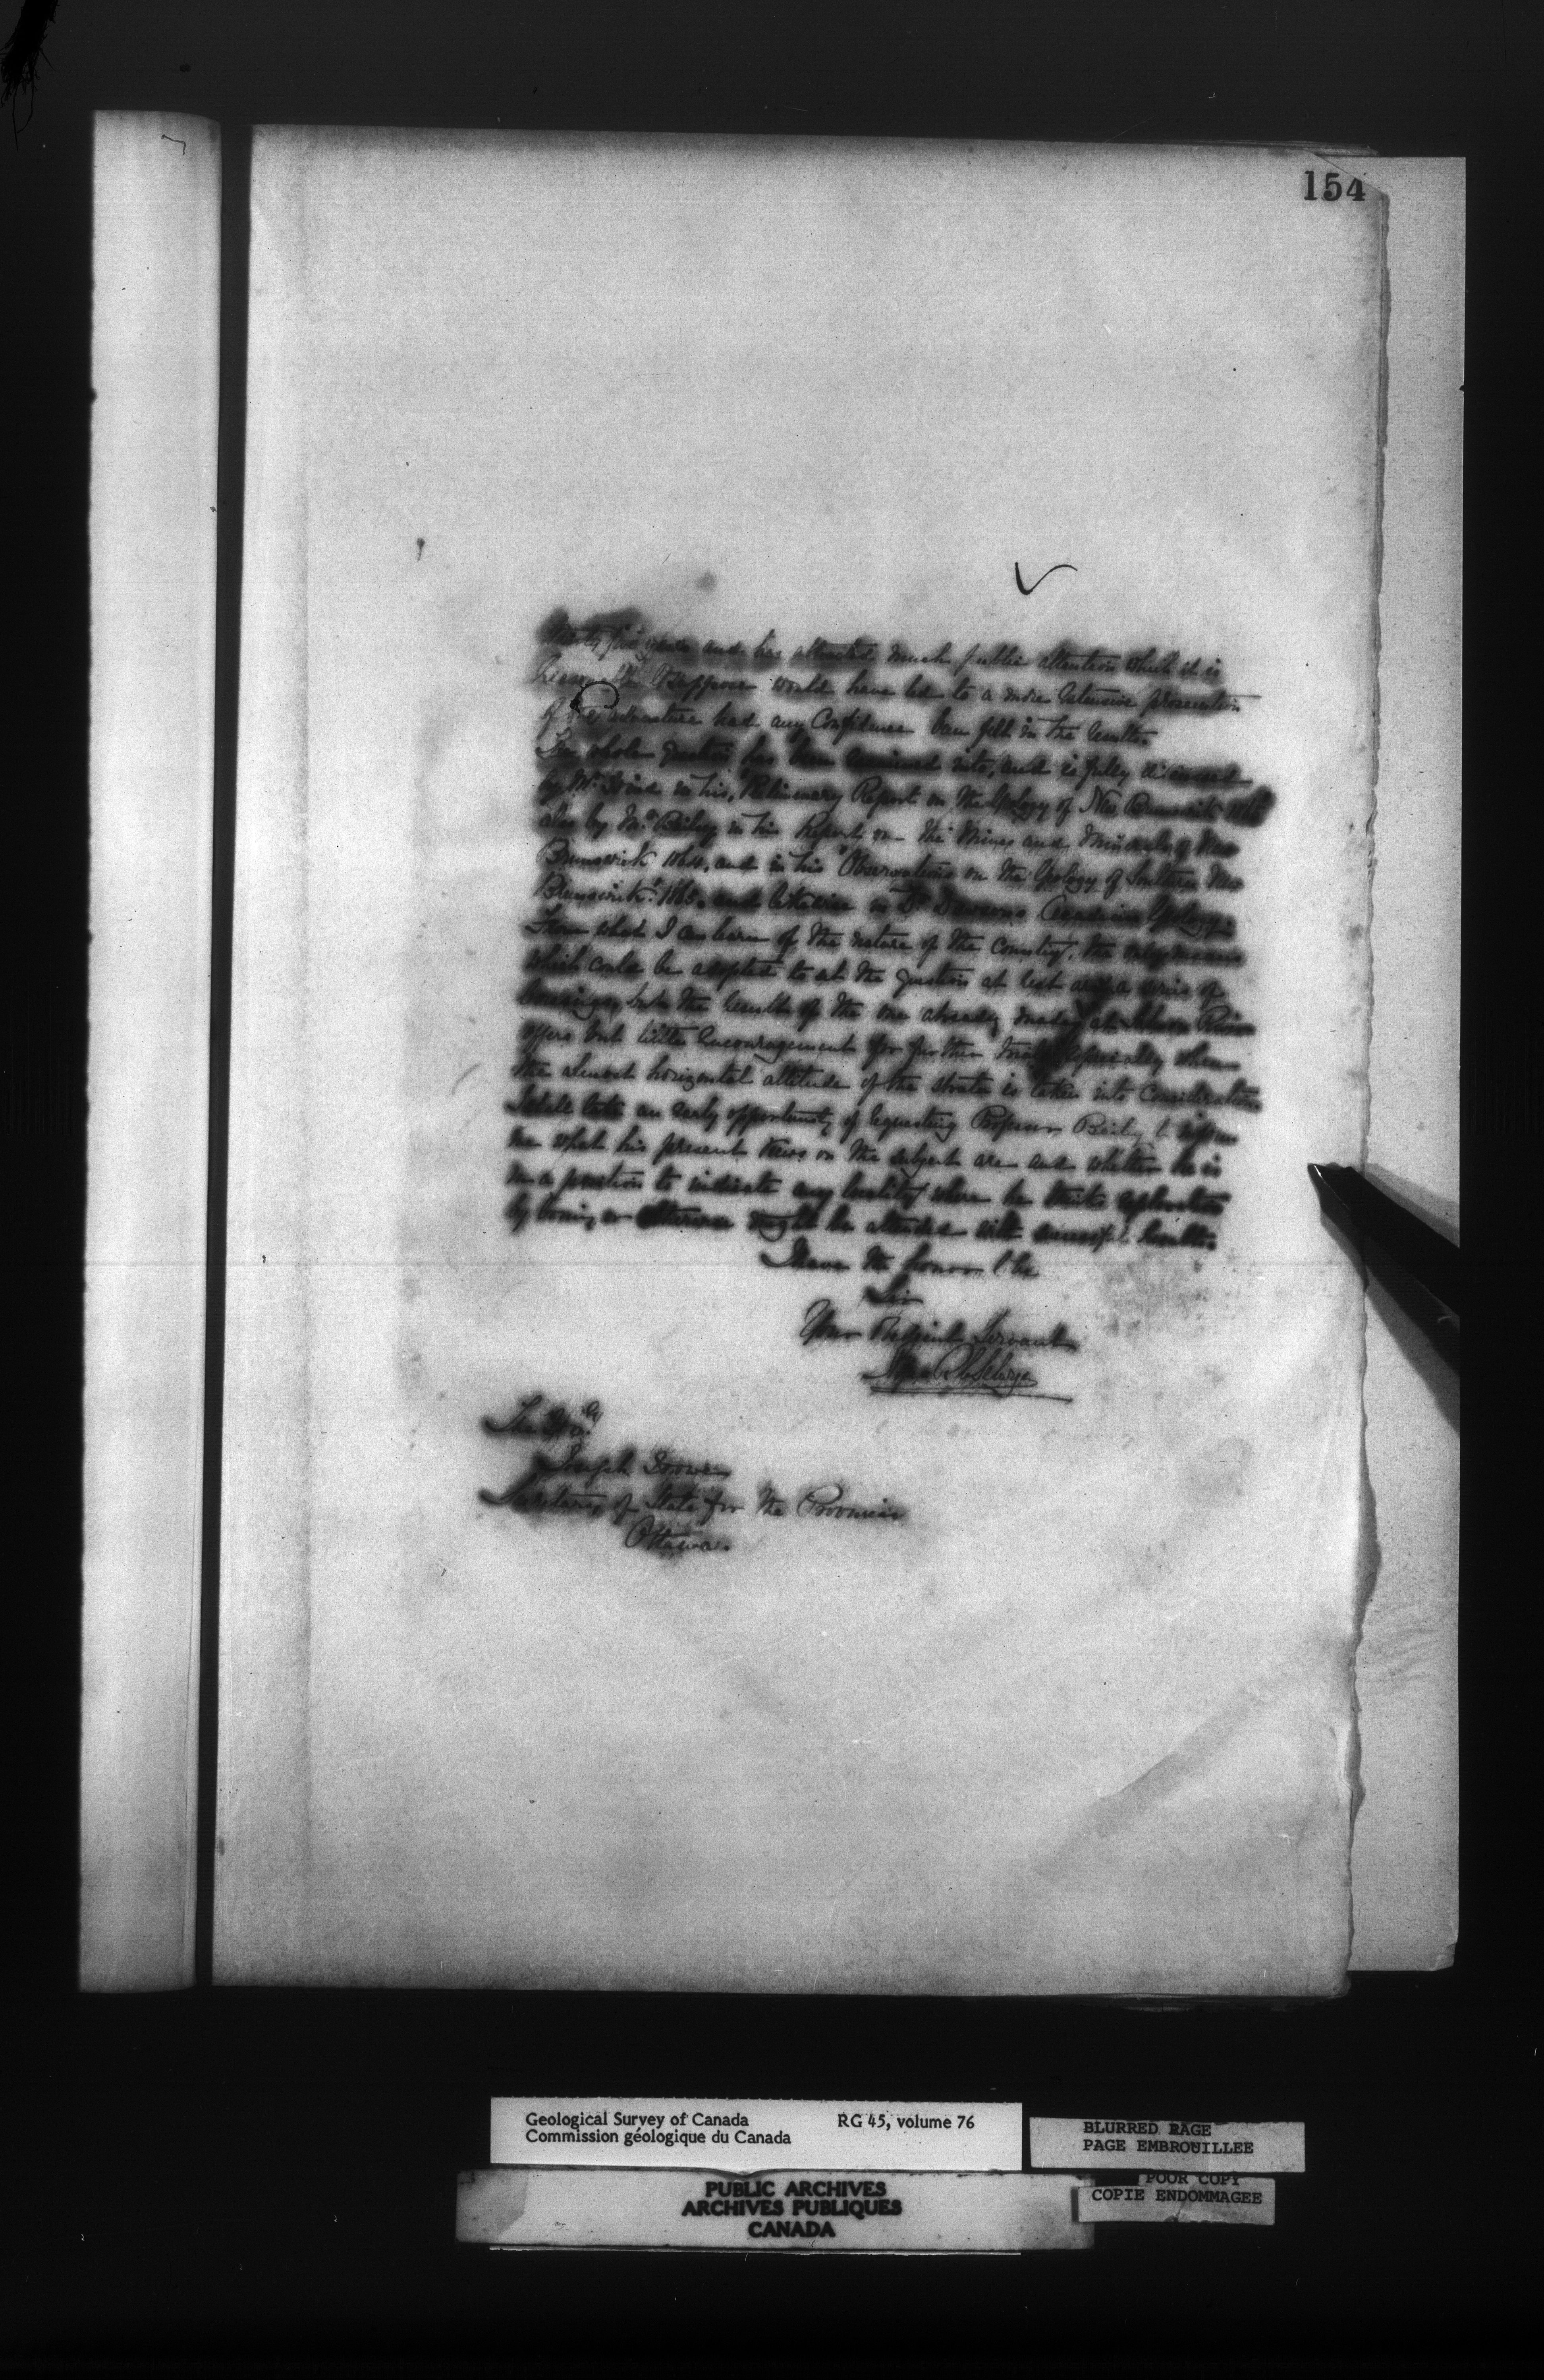 154
years and has attracted much public attention which it is
reasonable to suppose would have led to a more extensive prosecution
of the adventure had any Confidence been felt in the results.
The whole question has been examined into, and is fully discussed
by Mr Hind in his, Preliminary Report on the Geology of New Brunswick 1865
also by Mr Bailey in his Report on the Mines and Minerals of New
Brunswick 1864, and in his "Observations on the Geology of Southern New
Brunswick" 1865. and likewise in Dr Dawson's Acadian Geology.
From what I can learn of the nature of the Country, the only means
which could be adopted to set the question at rest are a series of
borings, but the results of the one already made at River
offers but little encouragement for further trials especially when
the almost horizontal attitude of the strata is taken into Consideration
I shall take an early opportunity of requesting Professor Bailey to inform
me what his present views on the subject are and whether he is
in a position to indicate any locality where he thinks exploration
by boring or otherwise might be attended with successful results.
I have the honor to be
Sir
Your Obedient Servant
Alfred R C Selwyn
The Honble
Joseph Howe
Secretary of State for the Provinces
Ottawa.
Geological Survey of Canada RG 45, volume 76
Commission géologique du Canada
BLURRED PAGE
PAGE EMBROUILLEE
POOR COPY
COPIE ENDOMMAGEE
PUBLIC ARCHIVES
ARCHIVES PUBLIQUES
CANADA